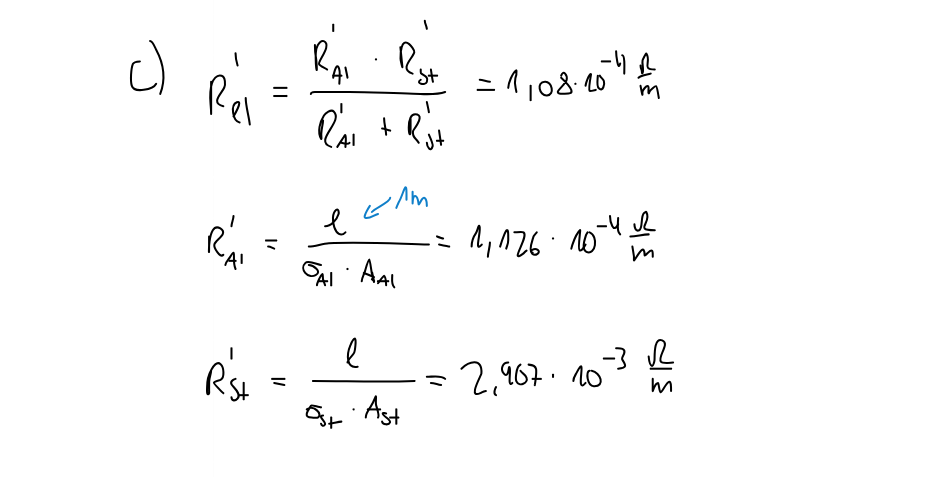 c) R'el = (R'Al · R'St) / (R'Al + R'St) = 1,08·10⁻⁴ Ω/m
R'Al = l / (σAl · AAl) = 1,126 · 10⁻⁴ Ω/m
1m
R'St = l / (σSt · ASt) = 2,907 · 10⁻³ Ω/m